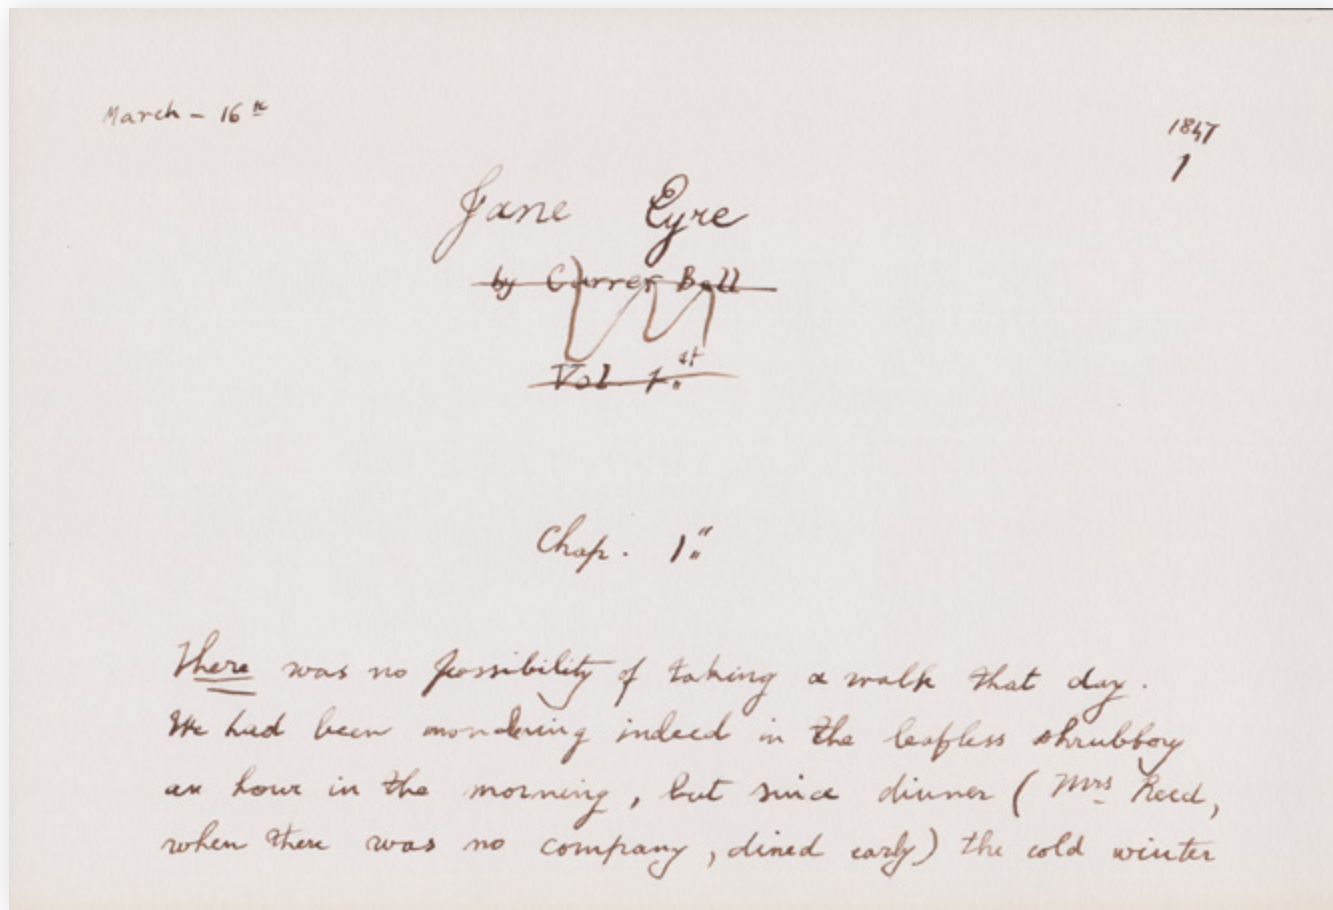 March - 16th
1847
1
Jane Eyre
by Currer Bell
Vol. 1.st
Chap. 1."
There was no possibility of taking a walk that day.
We had been wandering indeed in the leafless shrubbery
an hour in the morning, but since dinner (Mrs Reed,
when there was no company, dined early) the cold winter